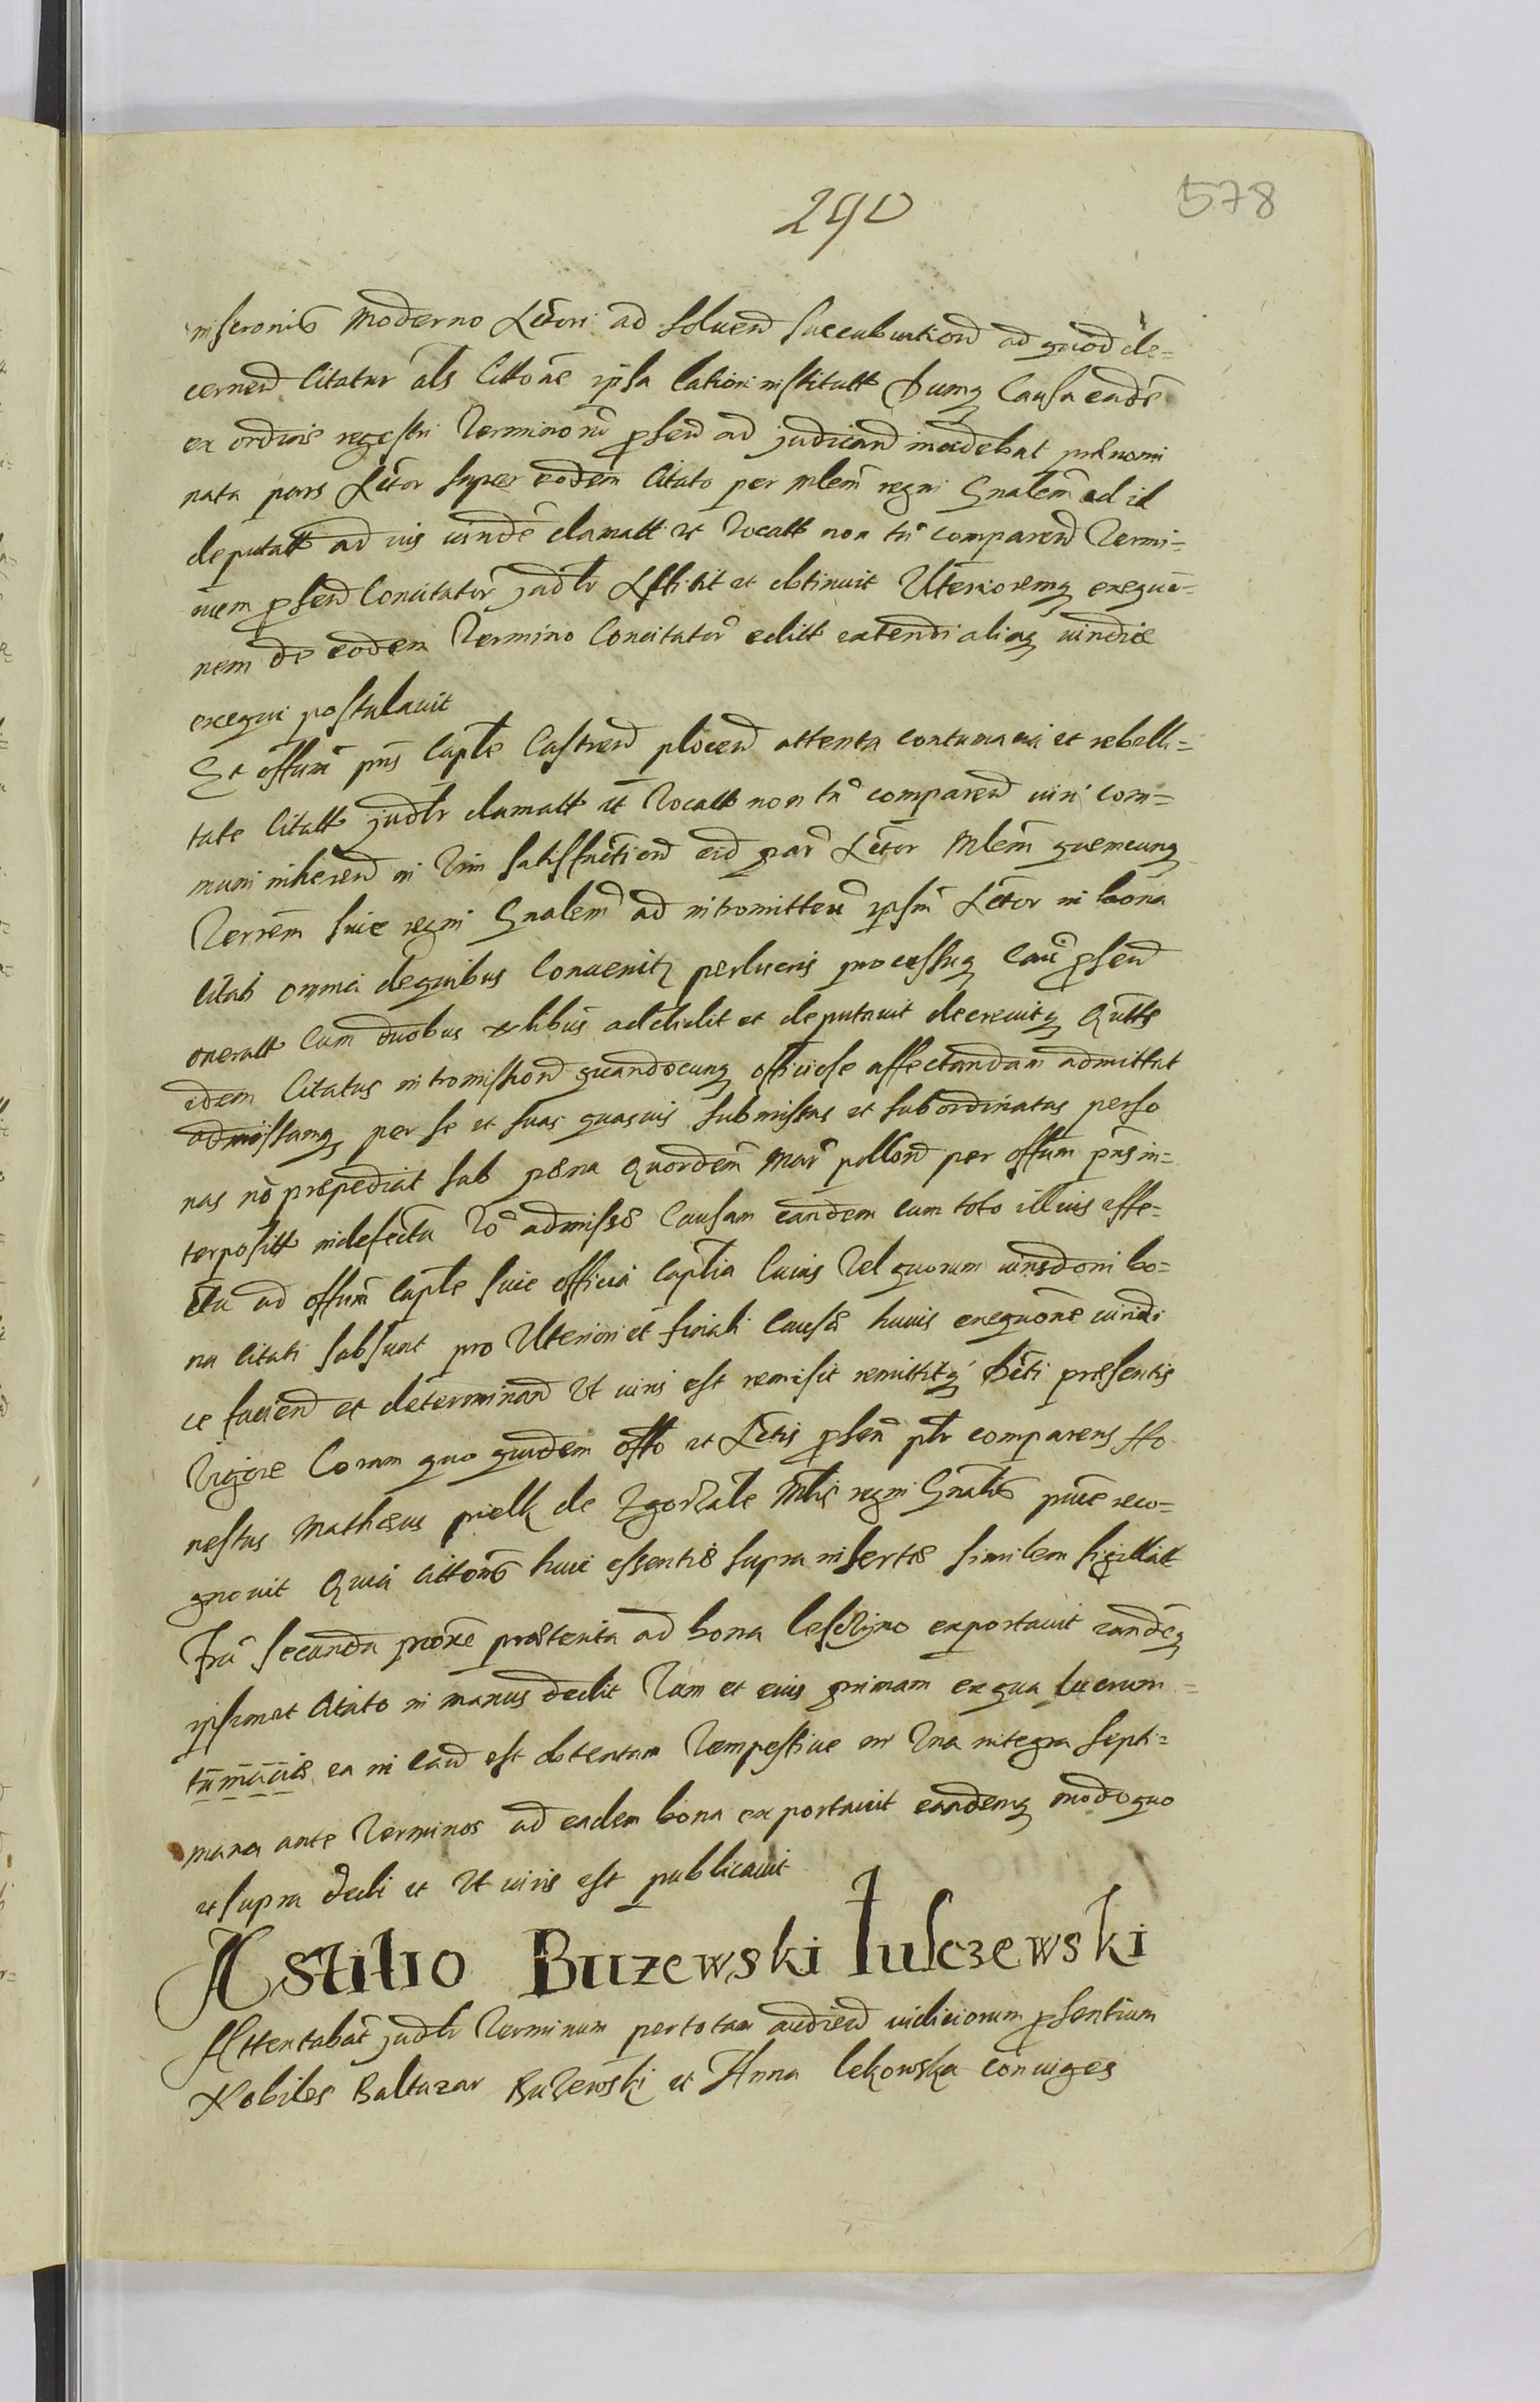 290
578
niscronis moderno Lctori ad solvend succubuitiond ad quod de=
cernend Citatur als Cittone ipsa lation institutt Dumq Causa eadē
ex ordinis regestri Terminorū p̄send ad judicand incidebat prænomi
nata pars Lctor super eodem Citato per Mlem regni Gnalem ad id
deputatt ad ius iurid̄e clamatt et vocatt non tn comparend Termi=
num p̄send Concitatur̄ judlr Lstitit et obtinuit Ulterioremq exequō=
nem de eodem Termino Concitatur̄ edict extendi aliasq iuridice
exequi postulavit
Et offum̄ pns Caplē Castrend plocend attenta contumacia et rebelli=
tate Citatt judlr clamatt et vocatt non tn comparend iuri com=
muni inherend in vim satisfactiond eid par̄ Lctor Mlem quemcunq
Terrem sive regni Gnalem ad intromittend ipsm Lctor in bona
Citati omnia de quibus Convenitr perlucris processuq Cau p̄send
oneratt Cum duobus xlibus addidit et deputavit decrevitq Qutts
idem Citatus intromissiond quandocunq officiose affectandam admittat
admissamq per se et suas quasvis submissas et subordinatas perso
nas nō præpediat sub pœna quordem̄ mar̄ pollond per offum pns in=
terpositt indefectu vo admisse Causam eandem cum toto illius effe=
ctu ad offum̄ Caplē sive officia Caplia Cuius vel quorum iurisdoni bo=
na Citati subsunt pro Ulteriori et finali Causæ huius exequōne iuridi
ce faciend et determinand Ut iuris est remisit remittitq Dcti præsentis
vigore Coram quo quidem offo et Lctis p̄sen plr comparens Ho
nestus Matheus pielk de Zgorzale Mlis regni Gnalis prince reco=
gnovit Quia Cittonis huic essentiæ supra insertæ similem sigillatt
Fra secunda proxe præterita ad bona Lesczyno exportavit eandēq
ipsimet Citato in manus dedit Tam et eius primam ex qua lucrum=
tūmaciæ ea in caud est obtentam Tempestive in Una integra septi=
mana ante Terminos ad eadem bona exportavit eandemq modo quo
et supra dedi et Ut iuris est publicavit
Astitio Buzewski Tulczewski
Attentabāt judlr Terminum pertotam audiend iudiciorum p̄sentium
Nobiles Baltazar Buzewski et Anna Lekowska coniuges